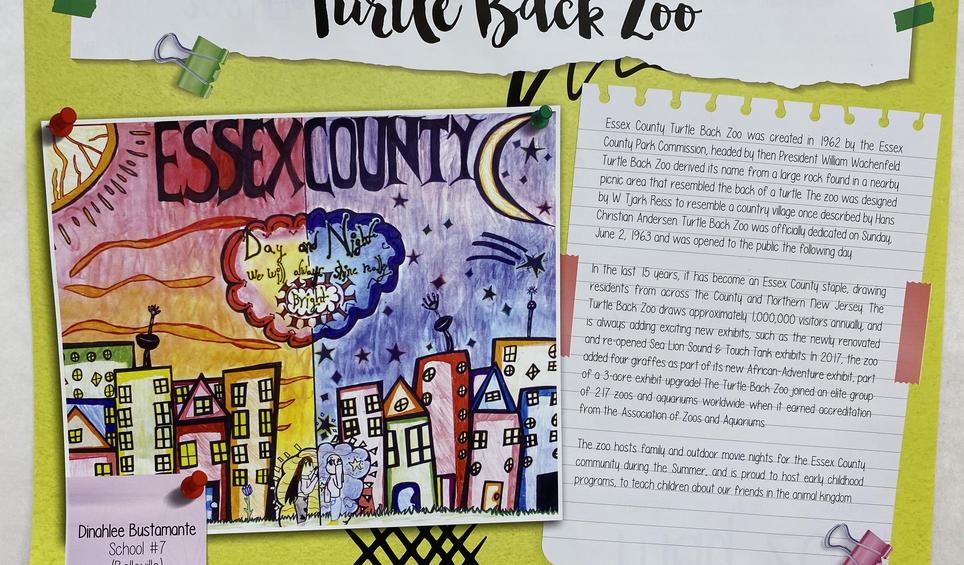 Turtle Back Zoo
ESSEX COUNTY
Day and Night
we will always shine really
Bright
Dinahlee Bustamante
School #7
(Belleville)
Essex County Turtle Back Zoo was created in 1962 by the Essex
County Park Commission, headed by then President William Wachenfeld
Turtle Back Zoo derived its name from a large rock found in a nearby
picnic area that resembled the back of a turtle. The zoo was designed
by W Tjark Reiss to resemble a country village once described by Hans
Christian Andersen. Turtle Back Zoo was officially dedicated on Sunday,
June 2, 1963 and was opened to the public the following day
In the last 15 years, it has become an Essex County staple, drawing
residents from across the County and Northern New Jersey. The
Turtle Back Zoo draws approximately 1,000,000 visitors annually, and
is always adding exciting new exhibits, such as the newly renovated
and re-opened Sea Lion Sound & Touch Tank exhibits. In 2017, the zoo
added four giraffes as part of its new African-Adventure exhibit, part
of a 3-acre exhibit upgrade! The Turtle Back Zoo joined an elite group
of 217 zoos and aquariums worldwide when it earned accreditation
from the Association of Zoos and Aquariums.
The zoo hosts family and outdoor movie nights for the Essex County
community during the Summer, and is proud to host early childhood
programs, to teach children about our friends in the animal kingdom.